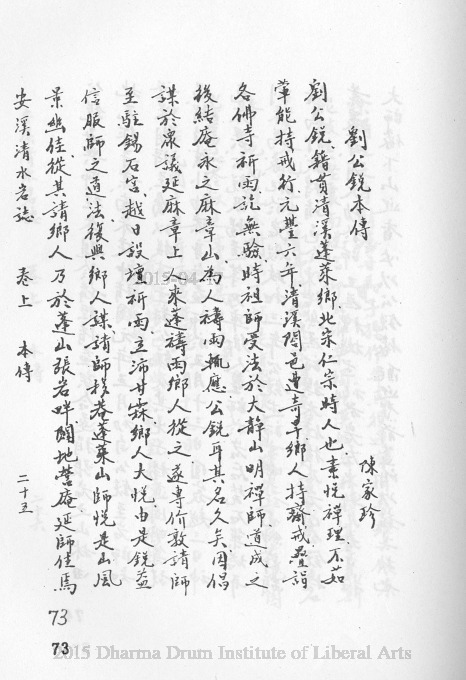 劉公銳本傳
陳家珍
劉公銳籍貫清溪蓬萊鄉北宋仁宗時人也素悅禪理不茹
葷能持戒行元豐六年清溪闔邑遭奇旱鄉人持齋戒疊詣
各佛寺祈雨訖無驗時祖師受法於大靜山明禪師道成之
後結庵永之麻章山為人禱雨輒應公銳耳其名久矣因倡
謀於眾議延麻章上人來蓬禱雨鄉人從之遂專价敦請師
至駐錫石宮越日設壇祈雨立沛甘霖鄉人大悅由是銳益
信服師之道法復興鄉人謀請師移菴蓬萊山師悅是山風
景幽佳從其請鄉人乃於蓬山張岩畔闢地營庵延師住焉
安溪清水岩誌 卷上 本傳 二十五
73
73
2015 Dharma Drum Institute of Liberal Arts